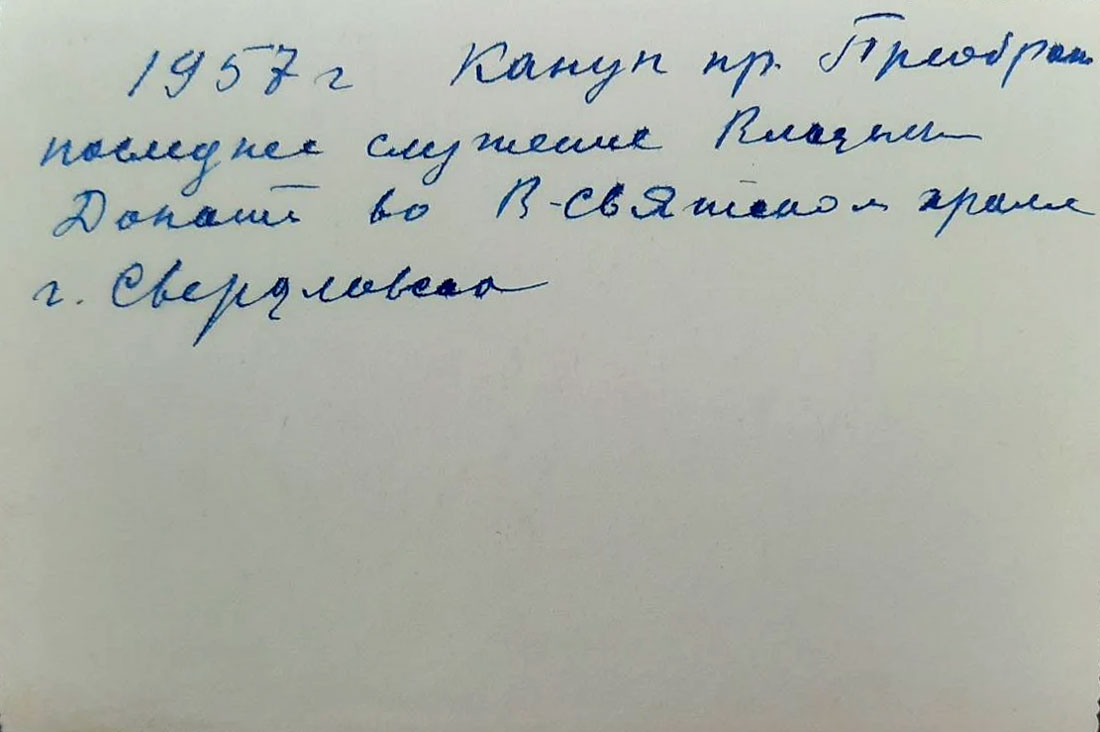 1957 г Канун пр. Преображ
последнее служение Владыки
Доната во В-святском храме
г. Свердловска